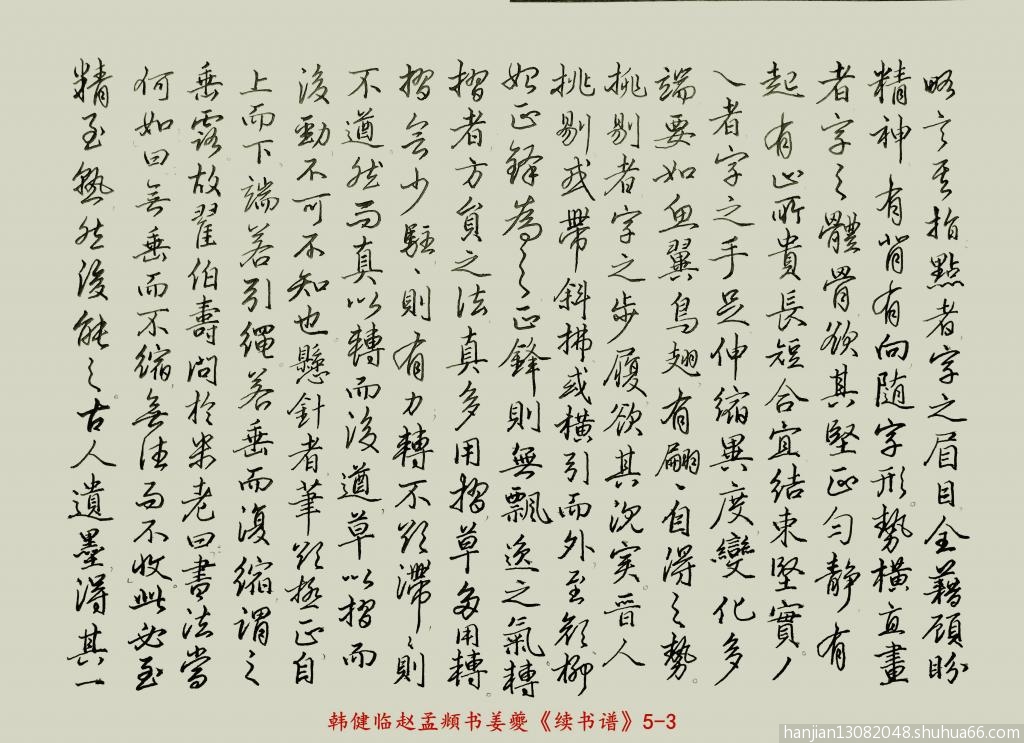 略言其指點者字之眉目全藉顧盼
精神有背有向随字形勢横直畫
者字之體骨欲其堅正匀静有
起有止所貴長短合宜结束堅實丿
乀者字之手足伸缩異度變化多
端要如魚翼鳥翅有翩々自得之勢
挑剔者字之步履欲其沉实晋人
挑剔或帶斜拂或横引而外至顔柳
始正鋒為之正鋒則無飄逸之氣轉
摺者方員之法真多用摺草多用轉
摺会少駐々則有力轉不欲滯々則
不遒然而真以轉而後遒草以摺而
後勁不可不知也懸針者筆欲極正自
上而下端若引繩若垂而復缩謂之
垂露故翟伯壽问於米老曰書法當
何如曰無垂而不缩無往而不收此必至
精至熟然後能之古人遺墨得其一
韩健临赵孟頫书姜夔《续书谱》5-3
hanjian13082048.shuhua66.com